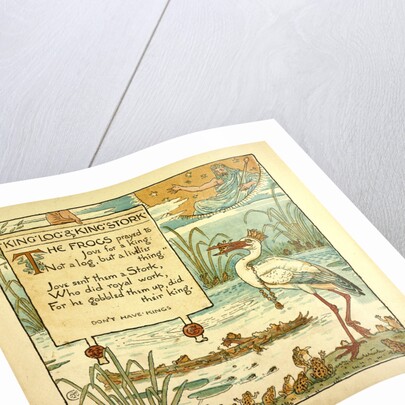 KING LOG & KING STORK
THE FROGS prayed to
Jove for a king:
Not a log, but a livelier
thing.
Jove sent them a Stork,
Who did royal work,
For he gobbled them up, did
their king.
DON'T HAVE KINGS